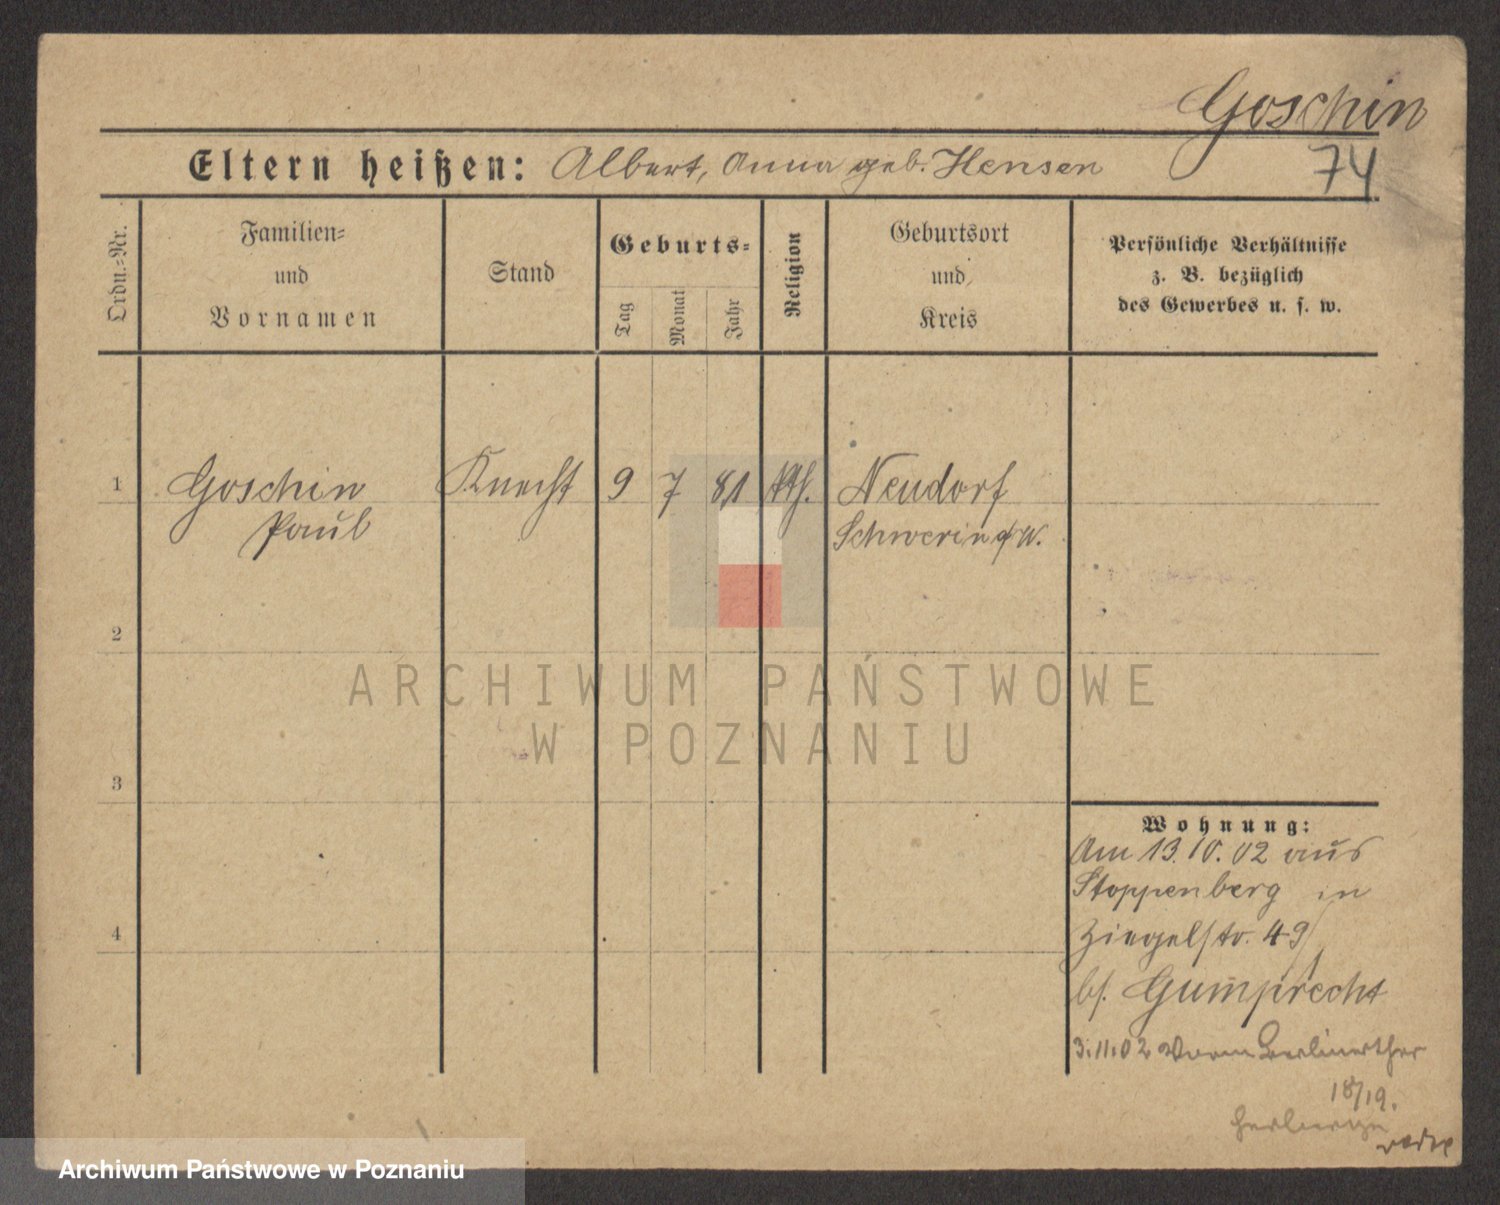 Goschin
74
Eltern heißen: Albert, Anna geb. Hensen
Ordn.-Nr.
Familien-
und
Vornamen
Stand
Geburts-
Tag
Monat
Jahr
Religion
Geburtsort
und
Kreis
Persönliche Verhältnisse
z. B. bezüglich
des Gewerbes u. s. w.
1 Goschin Knecht 9 7 81 kth. Neudorf
Paul Schwerin a/W.
2
ARCHIWUM PAŃSTWOWE
W POZNANIU
3
Wohnung:
Am 13.10.02 aus
Stoppenberg in
Ziegelstr. 49
bf. Gumprecht
4
3.11.02 Vorm Berlinerthor
18/19.
Archiwum Państwowe w Poznaniu